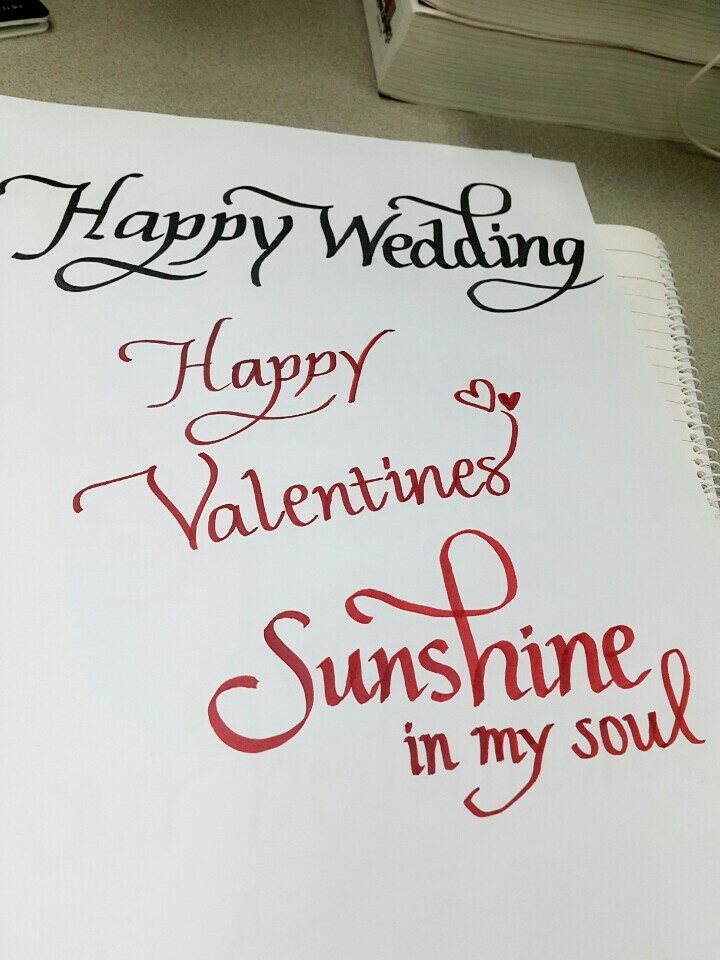 Happy Wedding
Happy
Valentines
Sunshine
in my soul